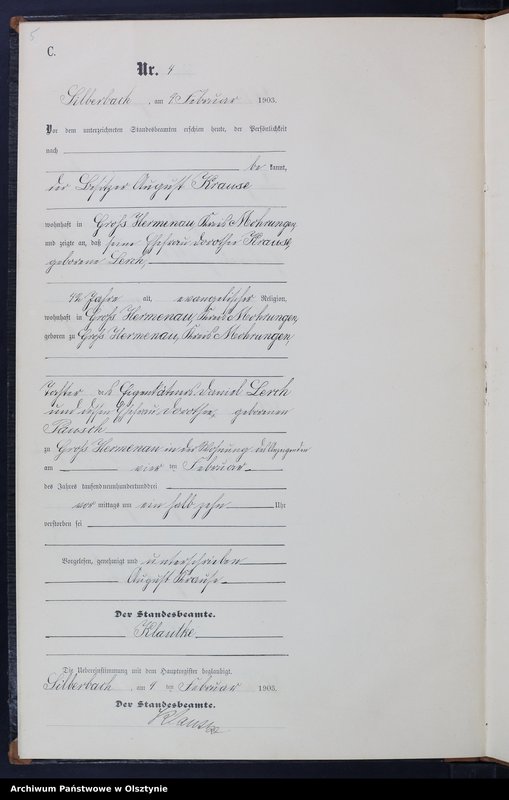 5
C.
Nr. 4
Silberbach, am 4 Februar 1903.
Vor dem unterzeichneten Standesbeamten erschien heute, der Persönlichkeit
nach
be kannt,
der Besitzer August Krause
wohnhaft in Groß Hermenau, Kreis Mohrungen,
und zeigte an, daß seine Ehefrau Dorothea Krause,
geborene Lerch,
42 Jahre alt, evangelischer Religion,
wohnhaft in Groß Hermenau, Kreis Mohrungen,
geboren zu Groß Hermenau, Kreis Mohrungen,
Tochter des Eigenkäthners Daniel Lerch
und dessen Ehefrau Dorothea, geborenen
zu Groß Hermenau in der Wohnung des Anzeigenden
am vier ten Februar
des Jahres tausendneunhundertunddrei
vor mittags um ein halb zehn Uhr
verstorben sei
Vorgelesen, genehmigt und unterschrieben
August Krause
Der Standesbeamte.
Die Uebereinstimmung mit dem Hauptregister beglaubigt.
Silberbach, am 4 ten Februar 1903.
Der Standesbeamte.
Archiwum Państwowe w Olsztynie